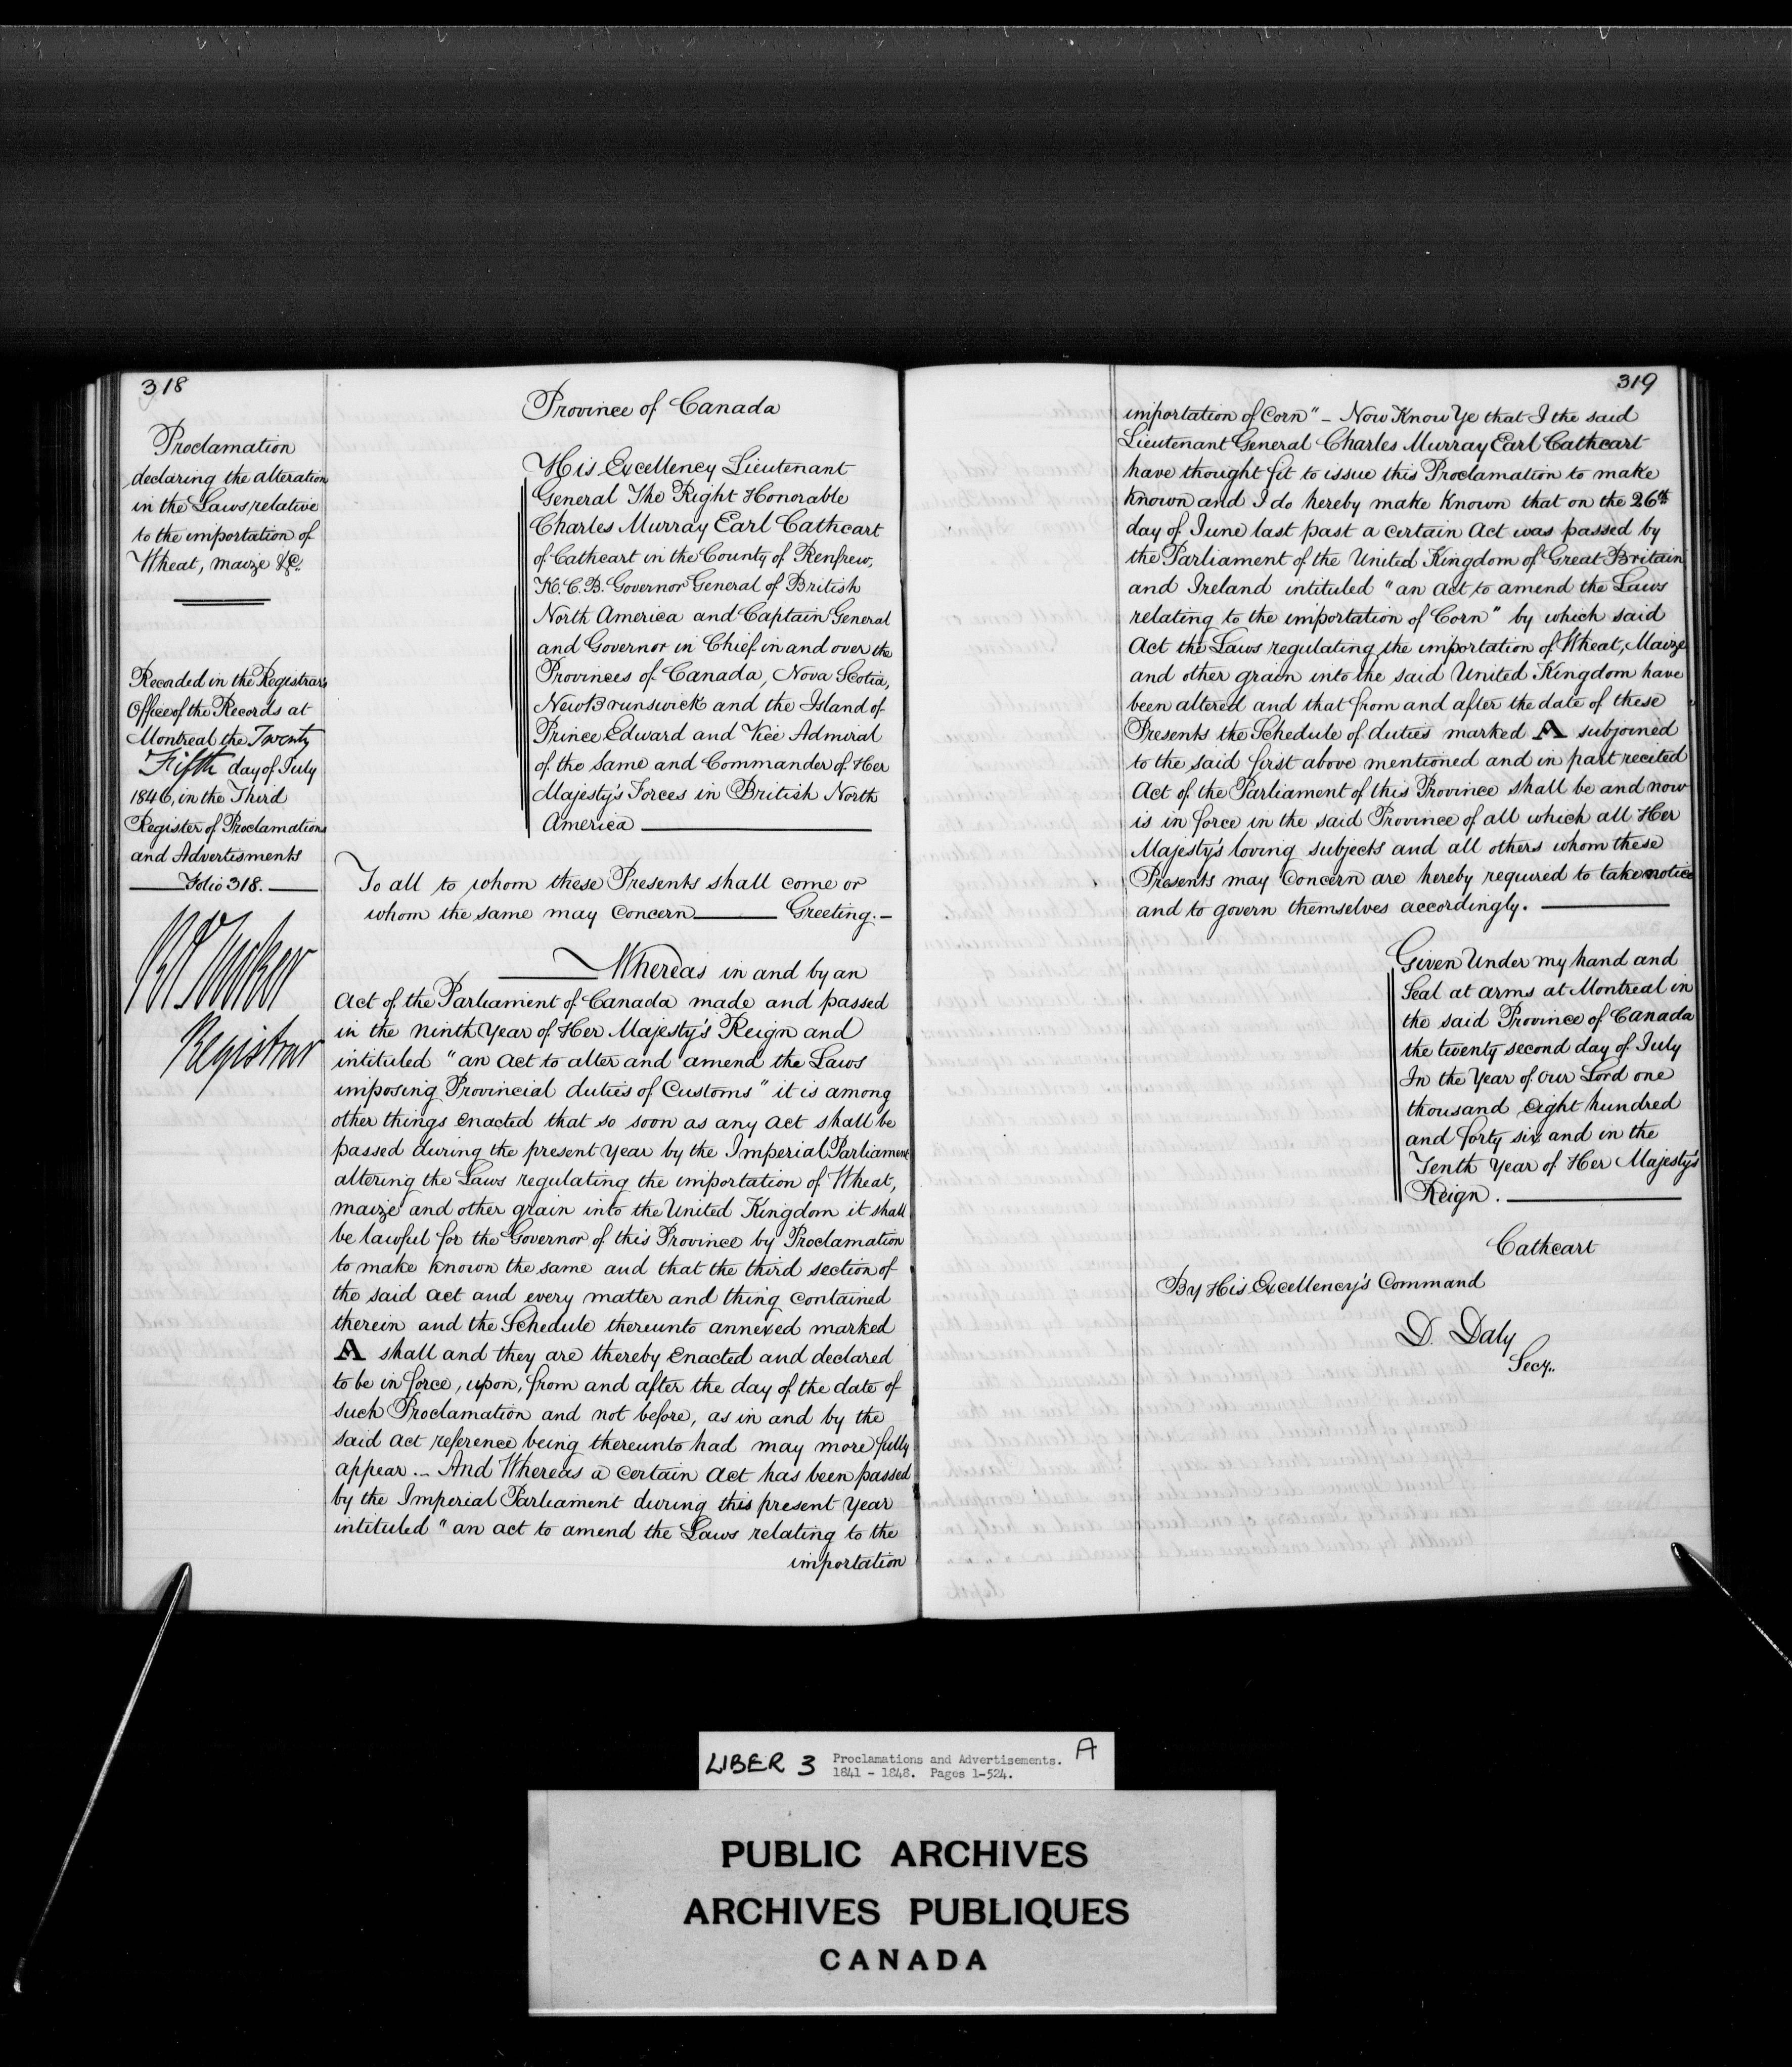 318
Proclamation
declaring the alteration
in the Laws relative
to the importation of
Wheat, maize &c.
Recorded in the Registrar's
Office of the Records at
Montreal the Twenty
Fifth day of July
1846, in the Third
Register of Proclamations
and Advertisments
Folio 318.
Registrar
Province of Canada
His Excellency Lieutenant
General The Right Honorable
Charles Murray Earl Cathcart
of Cathcart in the County of Renfrew,
K.C.B. Governor General of British
North America and Captain General
and Governor in Chief in and over the
Provinces of Canada, Nova Scotia,
New Brunswick and the Island of
Prince Edward and Vice Admiral
of the same and Commander of Her
Majesty's Forces in British North
America
To all to whom these Presents shall come or
whom the same may Concern Greeting.-
Whereas in and by an
Act of the Parliament of Canada made and passed
in the ninth Year of Her Majesty's Reign and
intituled "an Act to alter and amend the Laws
imposing Provincial duties of Customs" it is among
other things Enacted that so soon as any Act shall be
passed during the present Year by the Imperial Parliament
altering the Laws regulating the importation of Wheat,
maize and other grain into the United Kingdom it shall
be lawful for the Governor of this Province by Proclamation
to make known the same and that the third section of
the said Act and every matter and thing contained
therein and the Schedule thereunto annexed marked
A shall and they are thereby Enacted and declared
to be in force, upon, from and after the day of the date of
such Proclamation and not before, as in and by the
said Act reference being thereunto had may more fully
appear.- And Whereas a certain Act has been passed
by the Imperial Parliament during this present Year
intituled "an act to amend the Laws relating to the
importation
319
importation of Corn" - Now Know Ye that I the said
Lieutenant General Charles Murray Earl Cathcart
have thought fit to issue this Proclamation to make
known and I do hereby make Known that on the 26th
day of June last past a certain Act was passed by
the Parliament of the United Kingdom of Great Britain
and Ireland intituled "an Act to amend the Laws
relating to the importation of Corn" by which said
Act the Laws regulating the importation of Wheat, Maize
and other grain into the said United Kingdom have
been altered and that from and after the date of these
Presents the Schedule of duties marked A subjoined
to the said first above mentioned and in part recited
Act of the Parliament of this Province shall be and now
is in force in the said Province of all which all Her
Majesty's loving subjects and all others whom these
Presents may Concern are hereby required to take notice
and to govern themselves accordingly.
Given Under my hand and
Seal at Arms at Montreal in
the said Province of Canada
the twenty second day of July
In the Year of Our Lord one
thousand Eight hundred
and forty six and in the
Tenth Year of Her Majesty's
Reign.
Cathcart
By His Excellency's Command
D. Daly
Secy.
LIBER 3 Proclamations and Advertisements. A
1841 - 1848. Pages 1-524.
PUBLIC ARCHIVES
ARCHIVES PUBLIQUES
CANADA